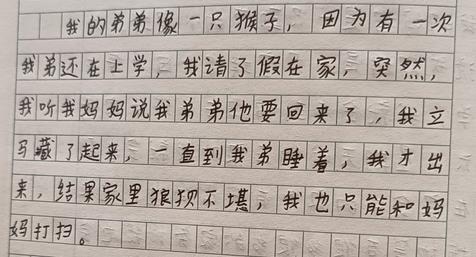 我的弟弟像一只猴子，因为有一次
我弟还在上学，我请了假在家，突然，
我听我妈妈说我弟弟他要回来了，我立
马藏了起来，一直到我弟睡着，我才出
来，结果家里狼狈不堪，我也只能和妈
妈打扫。